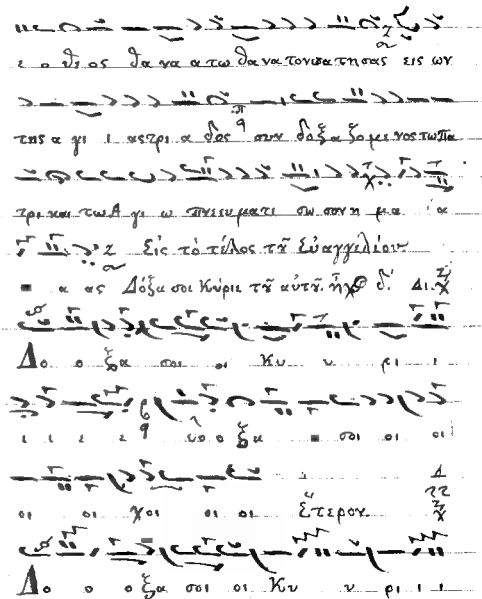 ε ο θε ος θα να α τω θα να τον πα τη σας εις ων
της α γι ι ας τρι α δος συν δο ξα ζο με νος τω πα
τρι και τω Α γι ω πνευ μα τι σω σον η μα α
α ας Εἰς τὸ τέλος τοῦ Εὐαγγελίου
Δόξα σοι Κύριε τοῦ αὐτοῦ. ἦχος δ΄ Δι.
Δο ο ξα σοι οι Κυ υ ρι ι
ι ι ε ε δο ο ξα σοι οι οι
οι οι χοι οι οι Ἕτερον
Δο ο ο ξα σοι οι Κυ υ ρι ι ι